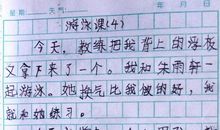 星期 天气： 年 月 日
游泳课(4)
今天，教练把我背上的浮板
又拿下来了一个。我和朱雨轩一
起游泳。她换气比我做的好，我
就和她练习。